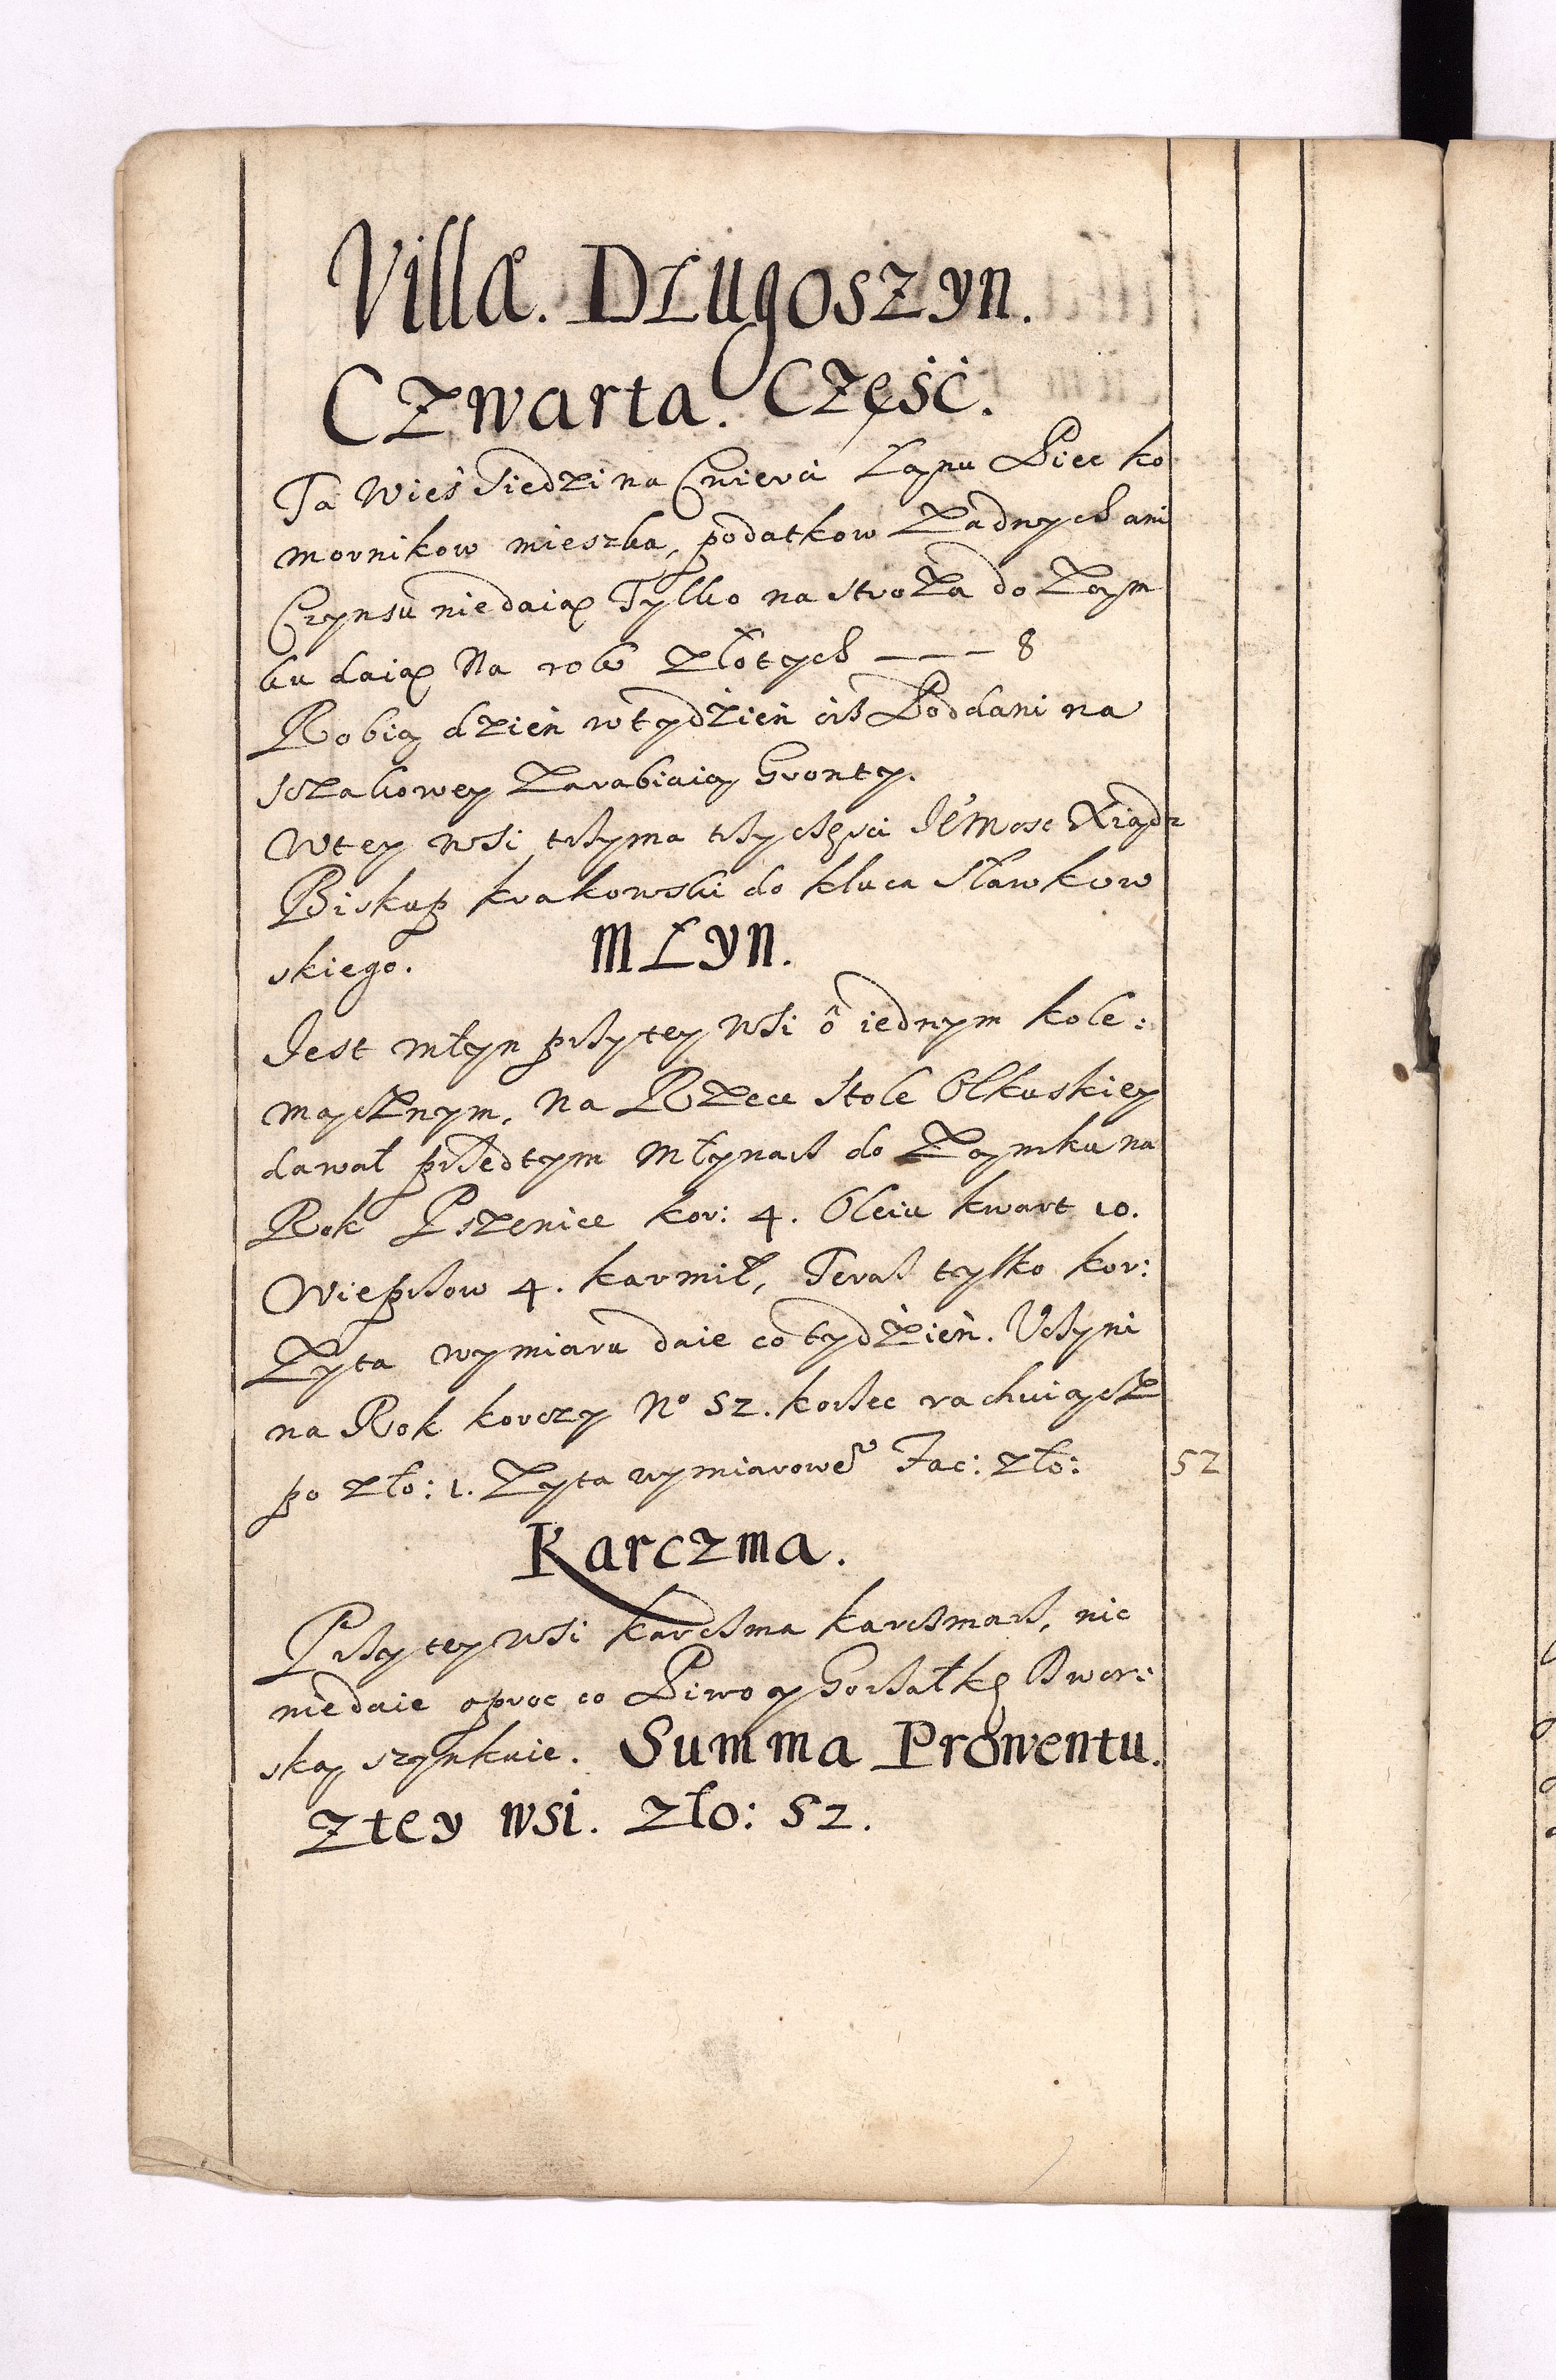 Villæ. Długoszyn.
Czwarta. Część.
Ta Wieś Siedzi na Cwierci Łanu Piec ko
mornikow mieszka, podatkow Żadnych ani
Czynsu nie daią Tylko na stroża do Zam
ku daią Na rok złotych ——— 8
Robią dzień w tydzień ciż Poddani na
sczakowey Zarabiaią Gronty.
W tey wsi trzyma trzy części Jeo Mość Xiądz
Biskup krakowski do klucza Sławkow
skiego. Młyn.
Jest młyn przy tey wsi ô iednym kole:
mącznym, na Rzece Stole Olkuskiey
dawał przedtym Młynarz do Zamku na
Rok Pszenice kor: 4. Oleiu kwart 10.
Wieprzow 4. karmił, Teraz tylko kor:
Żyta wymiaru daie co tydzień. Uczyni
na Rok korczy No 52. korzec rachuiącz
po zło: 1. Żyta wymiarowego Fac: zło: 52
Karczma.
Przy tey wsi karczma karczmarz, nic
nie daie oproc co Piwo y Gorzałkę Dwor:
ską szynkuie. Summa Prowentu.
z tey wsi. zło: 52.